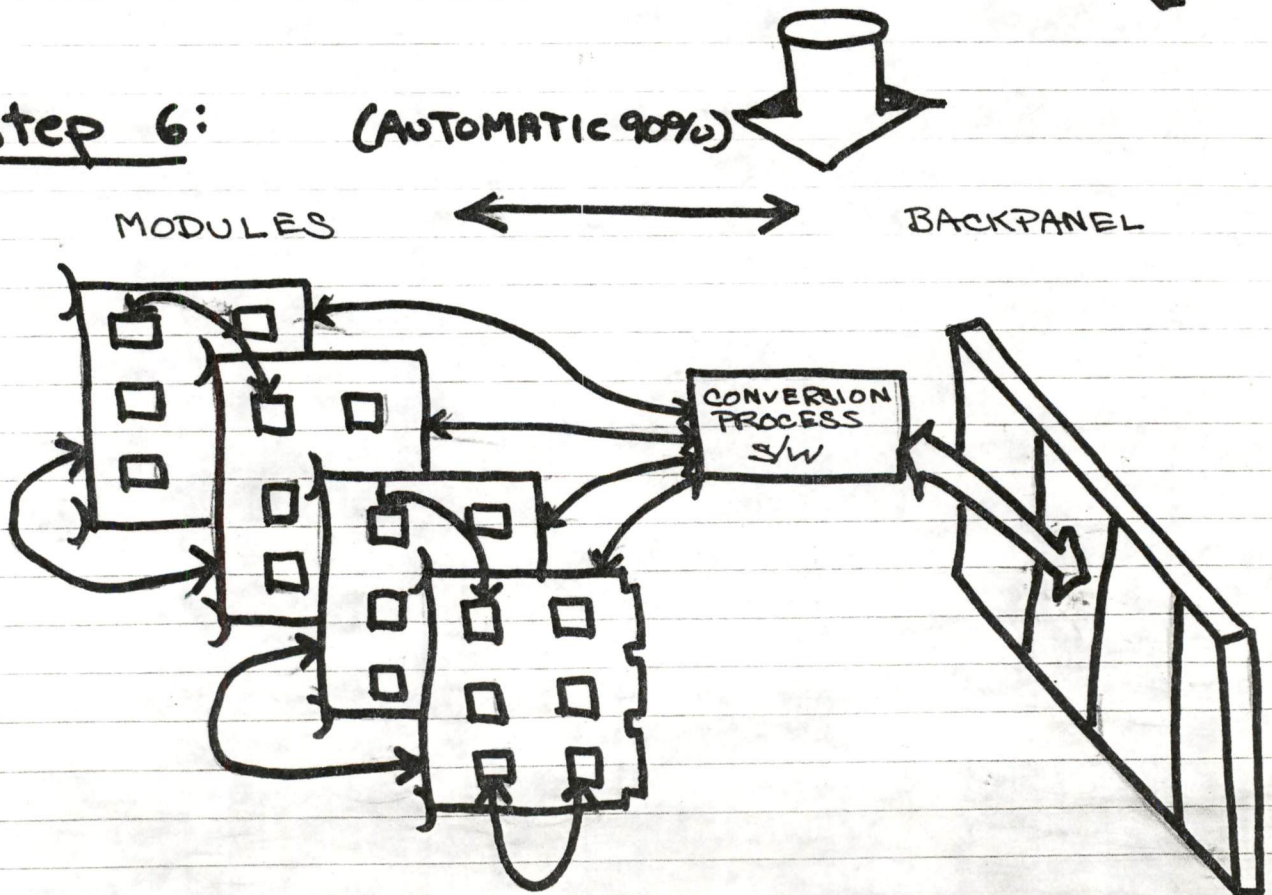 step 6: (AUTOMATIC 90%)
MODULES BACKPANEL
CONVERSION
PROCESS
S/W